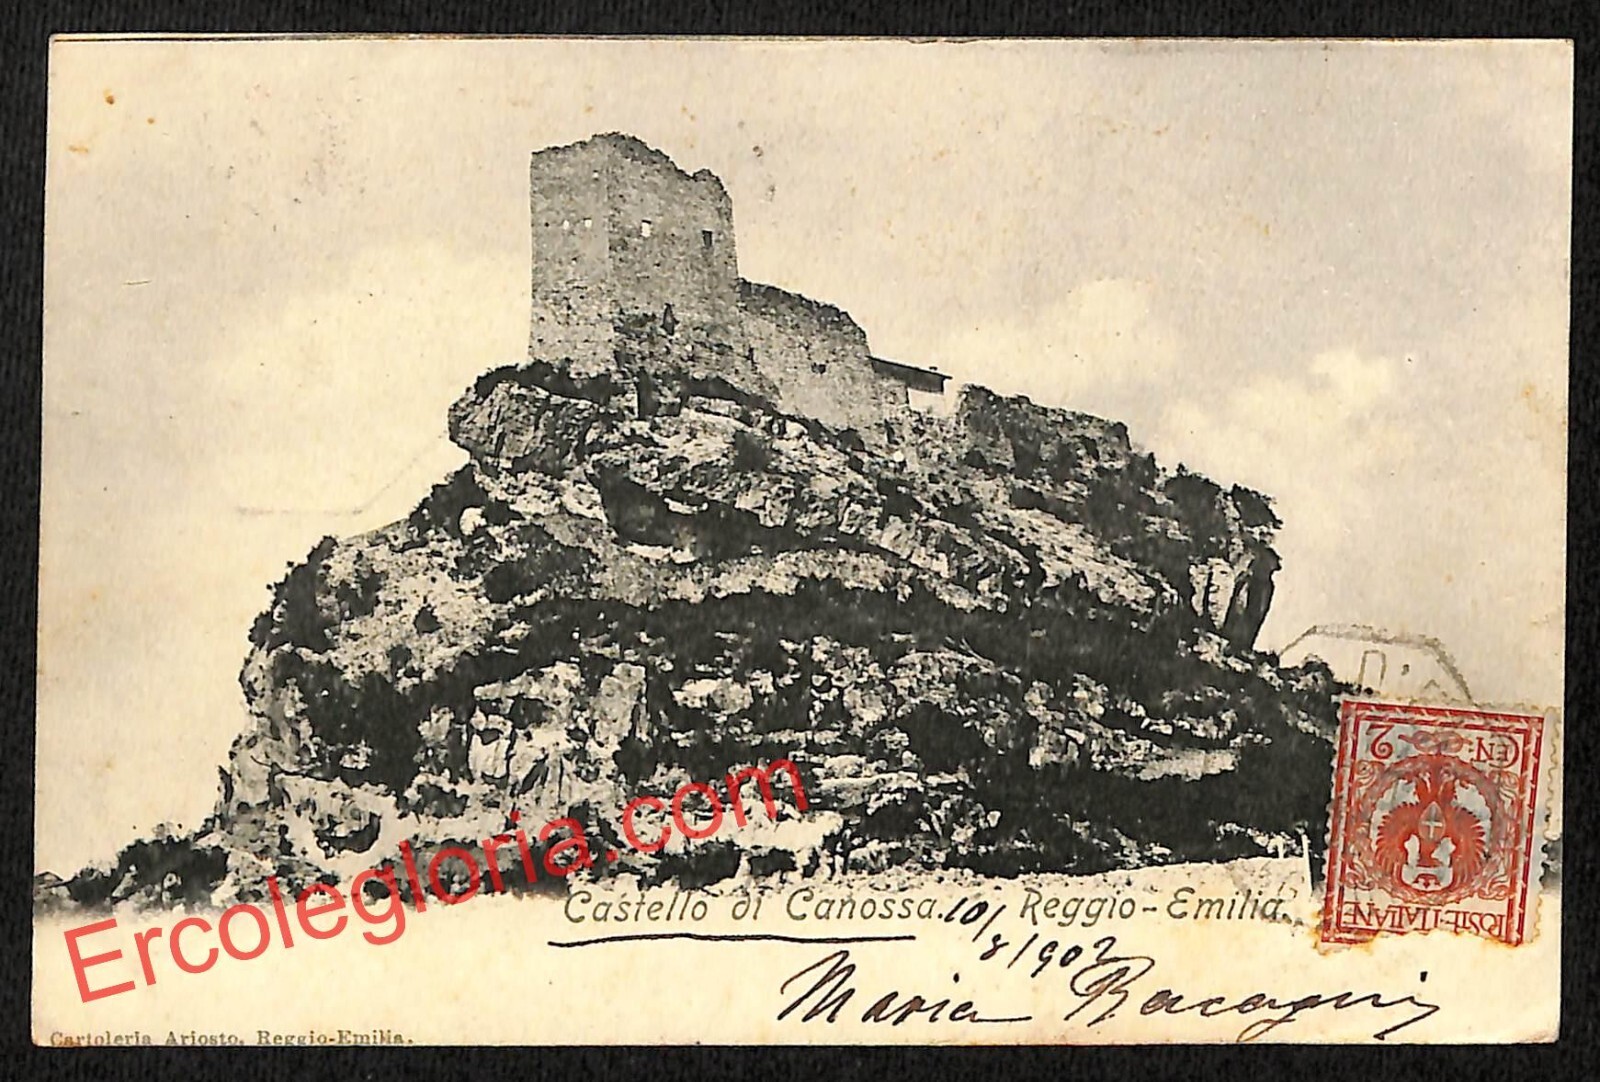 Ercolegloria.com
Castello di Canossa. Reggio-Emilia.
10/8/902
Maria
Cartoleria Ariosto, Reggio-Emilia.
CEN: 2
POSTE·ITALIANE